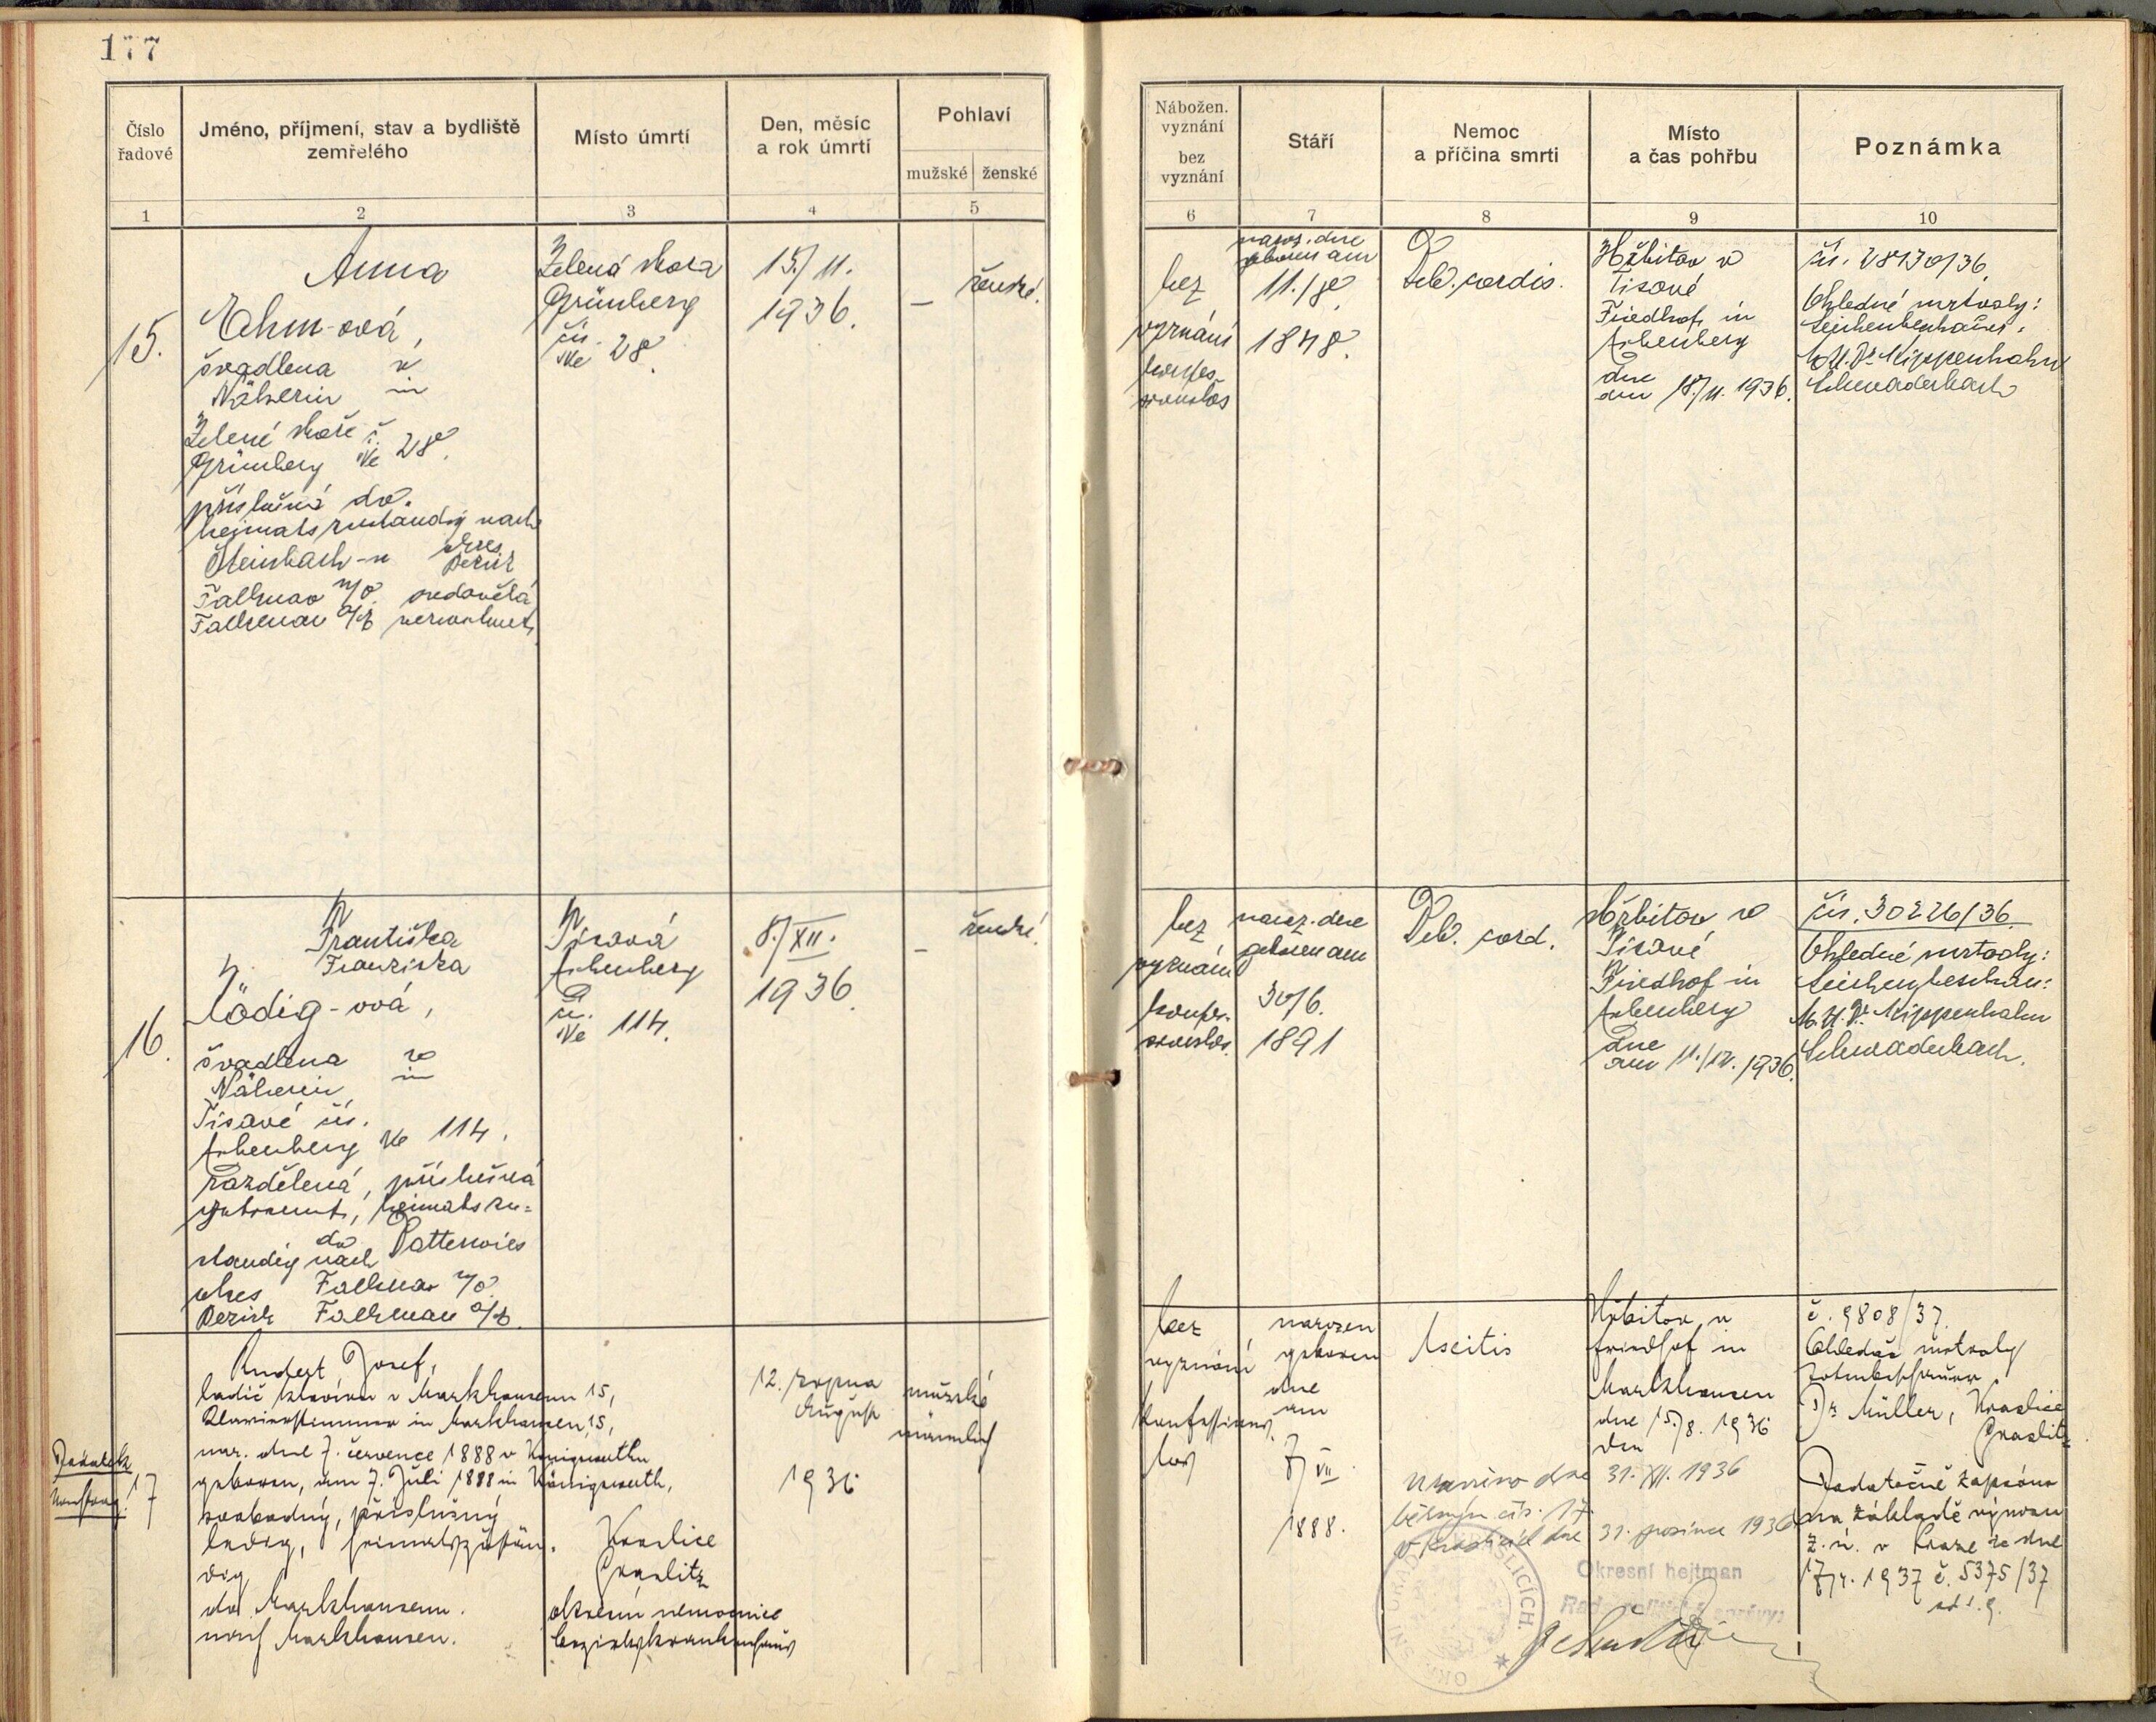 177
Číslo
řadové
Jméno, příjmení, stav a bydliště
zemřelého
Místo úmrtí
Den, měsíc
a rok úmrtí
Pohlaví
mužské
ženské
1
2
3
4
5
15.
Anna
švadlena v
Näherin in
Zelené hoře č.
Grünberg No 28.
příslušná do
heimatszuständig nach
Steinbach-u okres
Bezirk
Falknov n/O. ovdovělá
Falkenau a/E verwitwet
Zelená hora
Grünberg
čís.
No 28.
15./11.
1936.
–
ženské.
16.
Františka
Franziska
Lödig-ová,
švadlena v
Näherin in
Tisové čís.
Arbenberg No 114.
rozdělená, příslušná
getrennt, heimatszu=
ständig do
nach
okres Falknov n/O.
Bezirk Falkenau a/E.
Tisová
čís.
No 114.
8./XII.
1936
–
ženské.
Dodatek
17
Josef,
ladič klavírů v Markhausenu 15,
Klavierstimmer in Markhausen 15,
nar. dne 7. července 1888 v
geboren, am 7. Juli 1888 in Königswerth,
svobodný, příslušný
ledig, heimatszustän.
dig
do Markhausenu.
nach Markhausen.
Kraslice
Graslitz
okresní nemocnice
Bezirkskrankenhaus
12. srpna
August
1936
mužské
männlich
Nábožen.
vyznání
bez
vyznání
Stáří
Nemoc
a příčina smrti
Místo
a čas pohřbu
Poznámka
6
7
8
9
10
bez
vyznání
konfes-
sionslos
naroz. dne
geboren am
11./8.
1848.
Deb. cordis.
Hřbitov v
Tisové
Friedhof in
dne
am 18./11. 1936.
čís. 28130/36.
Ohledné mrtvoly:
Leichenbeschauer:
M.U.Dr. Kippenhahn
Schwaderbach
bez
vyznání
konfes-
sionslos.
naroz. dne
geboren am
30/6.
1891
Deb. cord.
Hřbitov v
Tisové
Friedhof in
dne
am 11./12. 1936.
čís. 30226/36.
Ohledné mrtvoly:
Leichenbeschau:
M.U.Dr. Kippenhahn
Schwaderbach.
bez
vyznání
konfessions
los
narozen
geboren
dne
am
7/VII.
1888.
Ascitis
Hřbitov v
Friedhof in
Markhausen
dne 15./8. 1936
den
č. 9808/37.
Ohledač mrtvoly
Totenbeschauer
Dr Müller, Kraslice
Graslitz
Dodatečně zapsáno
na základě výnosu
z. ú. v Praze ze dne
1937 č. 5375/37
Uzavřeno dne 31. XII. 1936
běžným čís. 17.
V Kraslicích dne 31. prosince 1936
Okresní hejtman
Rada politické správy: